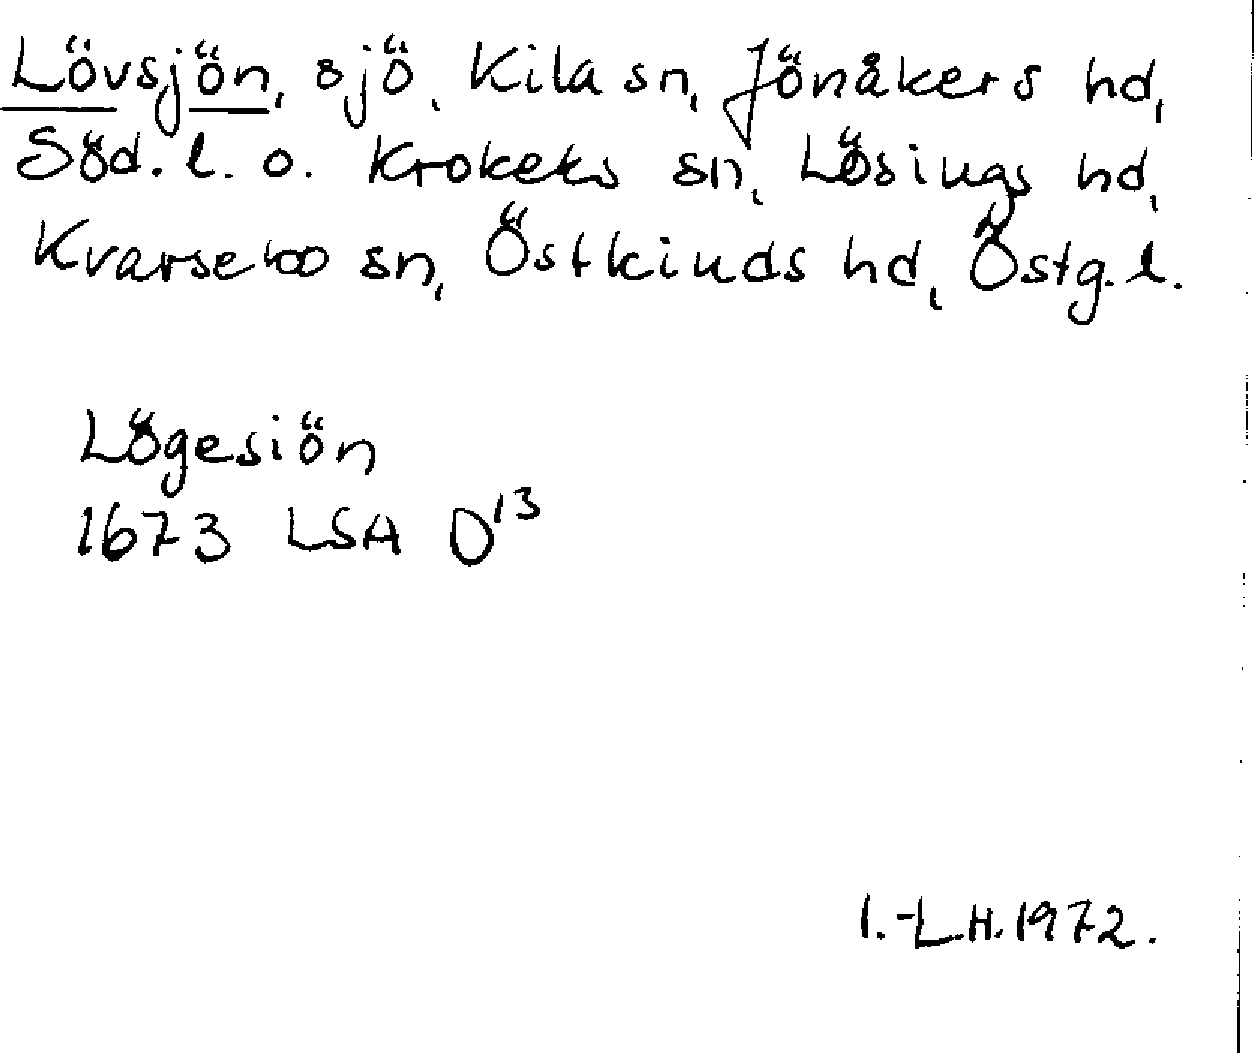 Lövsjön, sjö, Kila sn, Jönåkers hd,
Söd. l. o. Krokeks sn, Lösings hd,
Kvarsebo sn, Östkinds hd, Östg. l.
Lögesiön
1673 LSA D¹³
I.-L.H. 1972.